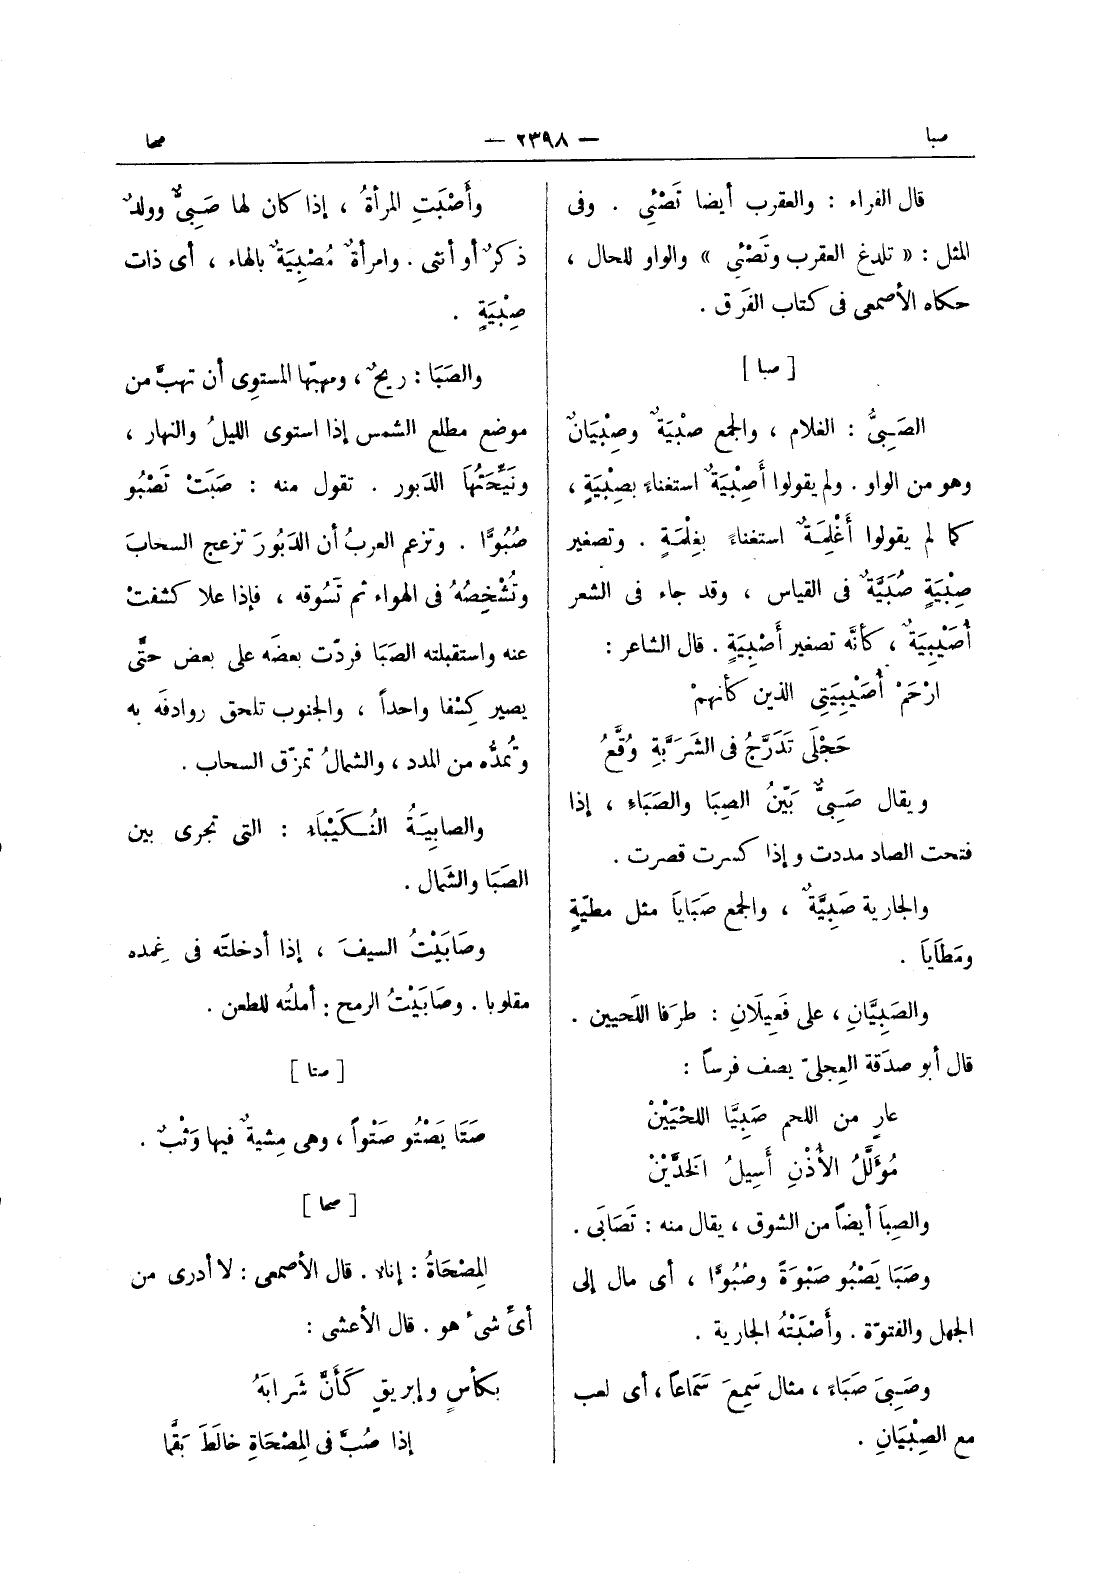 صبا
— ٢٣٩٨ —
صحا
قال الفراء : والعقرب أيضا تَصْئِي . وفى
المثل : « تلدغ العقرب وتَصْئِي » والواو للحال ،
حكاه الأصمعى فى كتاب الفَرق .
[ صبا ]
الصَبِىُّ : الغلام ، والجمع صِبْيَةٌ وصِبْيَانٌ
وهو من الواو . ولم يقولوا أَصْبِيَةٌ استغناءً بصِبْيَةٍ ،
كما لم يقولوا أَغْلِمَةٌ استغناءً بغِلْمَةٍ . وتصغير
صِبْيَةٍ صُبَيَّةٌ فى القياس ، وقد جاء فى الشعر
أُصَيْبِيَةٌ ، كأنَّه تصغير أَصْبِيَةٍ . قال الشاعر :
ارْحَمْ أُصَيْبِيَتِى الذين كأنهمْ
حَجْلَى تَدَرَّجُ فى الشَرَبَّةِ وُقَّعُ
ويقال صَبِىٌّ بَيِّنُ الصِبَا والصَبَاءِ ، إذا
فتحت الصاد مددت وإذا كسرت قصرت .
والجارية صَبِيَّةٌ ، والجمع صَبَايَا مثل مطيّةٍ
ومَطَايَا .
والصَبِيَّانِ ، على فَعِيلَانِ : طرفا اللَحيين .
قال أبو صدَقة العِجلىّ يصف فرساً :
عارٍ من اللحم صَبِيَّا اللحْيَيْنْ
مُؤَلَّلُ الأُذْنِ أَسِيلُ الخدَّيْنْ
والصِبَا أيضاً من الشوق ، يقال منه : تَصَابَى .
وصَبَا يَصْبُو صَبْوَةً وصُبُوًّا ، أى مال إلى
الجهل والفتوّة . وأَصْبَتْهُ الجارية .
وصَبِىَ صَبَاءً ، مثال سَمِعَ سَمَاعاً ، أى لعب
مع الصِبْيَانِ .
وأَصْبَتِ المرأةُ ، إذا كان لها صَبِىٌّ وولدٌ
ذكرٌ أو أنثى . وامرأةٌ مُصْبِيَةٌ بالهاء ، أى ذات
صِبْيَةٍ .
والصَبَا : ريحٌ ، ومهبّها المستوِى أن تهبَّ من
موضع مطلع الشمس إذا استوى الليلُ والنهار ،
ونَيِّحَتُهَا الدَبور . تقول منه : صَبَتْ تَصْبُو
صُبُوًّا . وتزعم العربُ أن الدَبُورَ تزعج السحابَ
وتُشْخِصُهُ فى الهواء ثم تَسُوقه ، فإذا علا كشفتْ
عنه واستقبلته الصَبَا فردّت بعضَه على بعض حتَّى
يصير كِسْفا واحداً ، والجنوب تلحق روادفَه به
وتُمدُّه من المدد ، والشمالُ تمزّق السحاب .
والصابِيَةُ النُكَيْبَاءُ : التى تجرى بين
الصَبَا والشَمال .
وصَابَيْتُ السيفَ ، إذا أدخلتَه فى غِمده
مقلوبا . وصَابَيْتُ الرمح : أملتُه للطعن .
[ صتا ]
صَتَا يَصْتُو صَتْواً ، وهى مِشيةٌ فيها وَثْبٌ .
[ صحا ]
المِصْحَاةُ : إناء . قال الأصمعى : لا أدرى من
أىِّ شىءٍ هو . قال الأعشى :
بكأسٍ وإبريقٍ كَأَنَّ شَرابَهُ
إذا صُبَّ فى المِصْحَاةِ خالَطَ بَقَّما